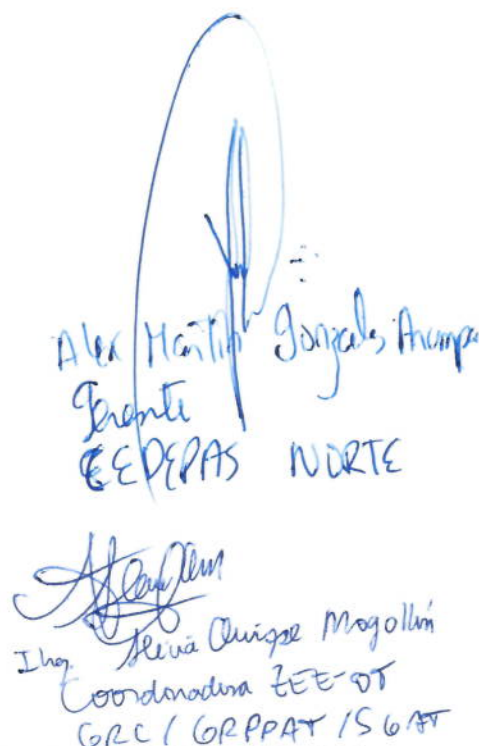 Alex Martin Gonzales
Gerente
CEDEPAS NORTE
Ing. Quispe Mogollón
Coordinadora ZEE-OT
GRC / GRPPAT / SGAT